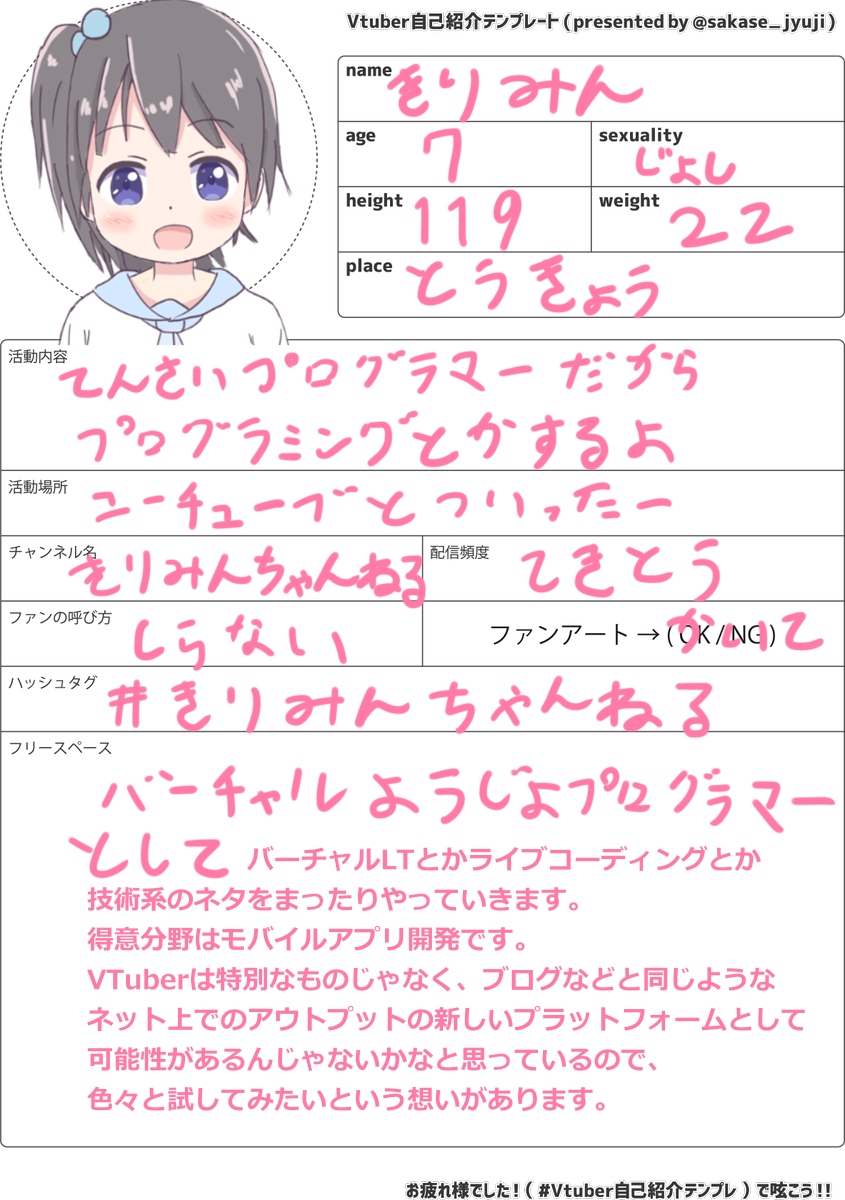 Vtuber自己紹介テンプレート ( presented by @sakase_jyuji )
name きりみん
age 7
sexuality じょし
height 119
weight 22
place とうきょう
活動内容
てんさいプログラマーだから
プログラミングとかするよ
活動場所 ユーチューブとついったー
チャンネル名 きりみんちゃんねる
配信頻度 てきとう
ファンの呼び方 しらない
ファンアート → ( OK / NG ) かいて
ハッシュタグ #きりみんちゃんねる
フリースペース
バーチャルようじょプログラマー
として バーチャルLTとかライブコーディングとか
技術系のネタをまったりやっていきます。
得意分野はモバイルアプリ開発です。
VTuberは特別なものじゃなく、ブログなどと同じような
ネット上でのアウトプットの新しいプラットフォームとして
可能性があるんじゃないかなと思っているので、
色々と試してみたいという想いがあります。
お疲れ様でした！( #Vtuber自己紹介テンプレ ) で呟こう！！